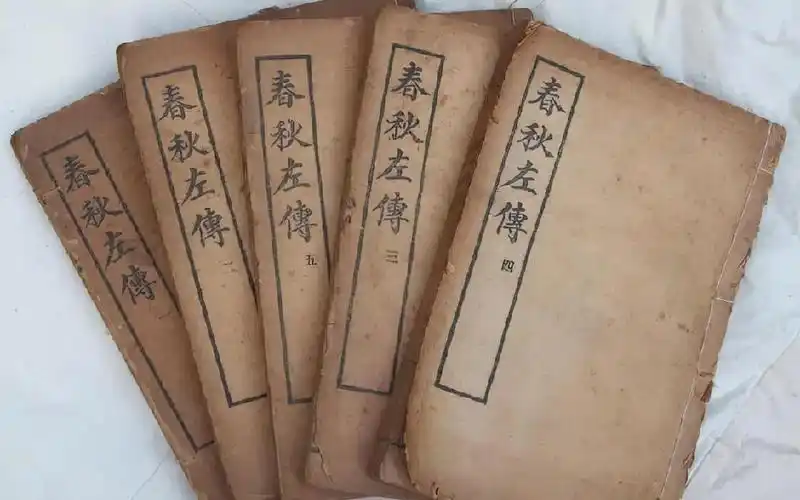 春秋左傳
春秋左傳
一
春秋左傳
五
春秋左傳
三
春秋左傳
四